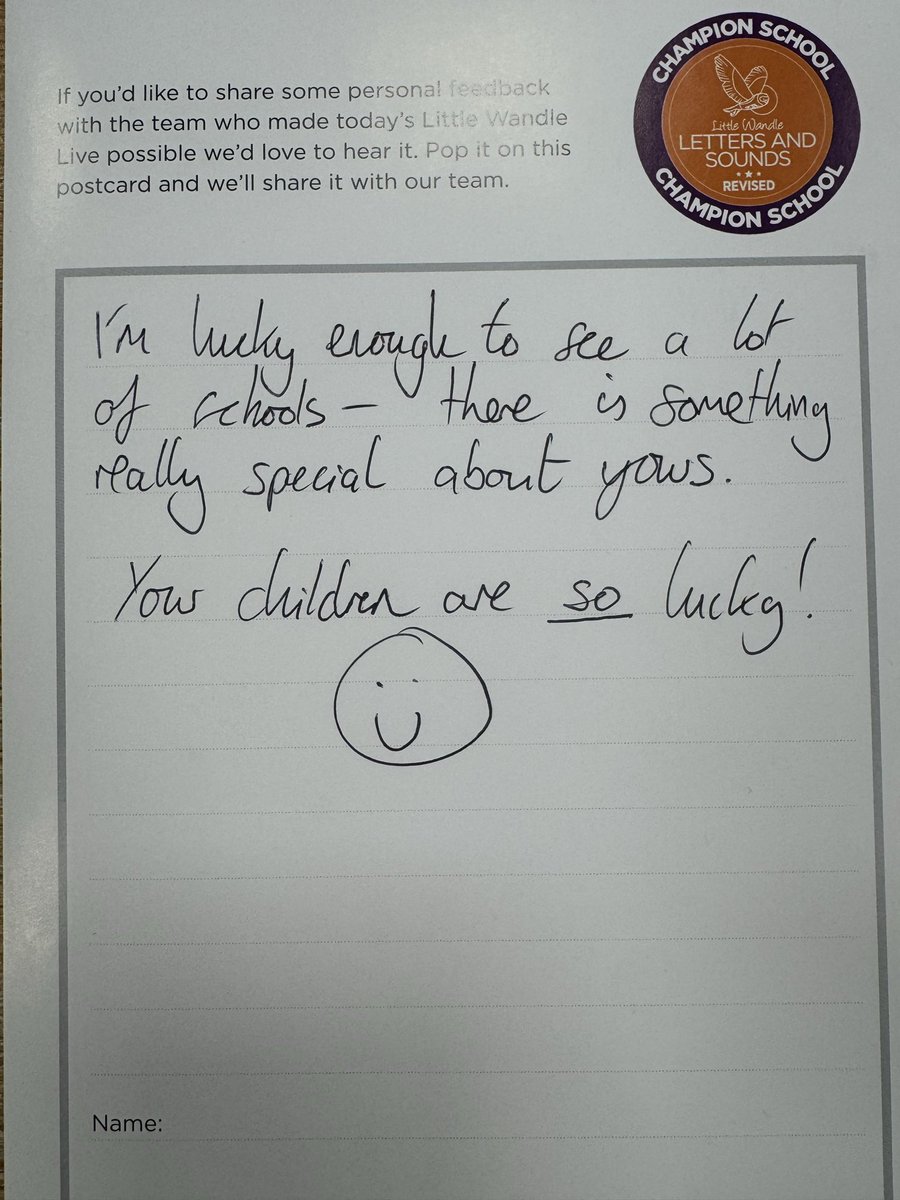 If you'd like to share some personal feedback
with the team who made today's Little Wandle
Live possible we'd love to hear it. Pop it on this
postcard and we'll share it with our team.
CHAMPION SCHOOL
Little Wandle
LETTERS AND
SOUNDS
REVISED
CHAMPION SCHOOL
I'm lucky enough to see a lot
of schools – there is something
really special about yours.
Your children are so lucky!
Name: